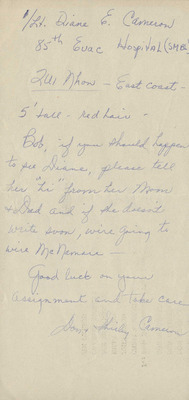 1/Lt. Diane E. Cameron
85th Evac Hospital (SMBL)
Qui Nhon - East coast -
5' tall - red hair -
Bob, if you should happen
to see Diane, please tell
her "hi" from her Mom
& Dad and if she doesn't
write soon, we're going to
wire McNamara -
Good luck on your
assignment and take care
Shirley Cameron